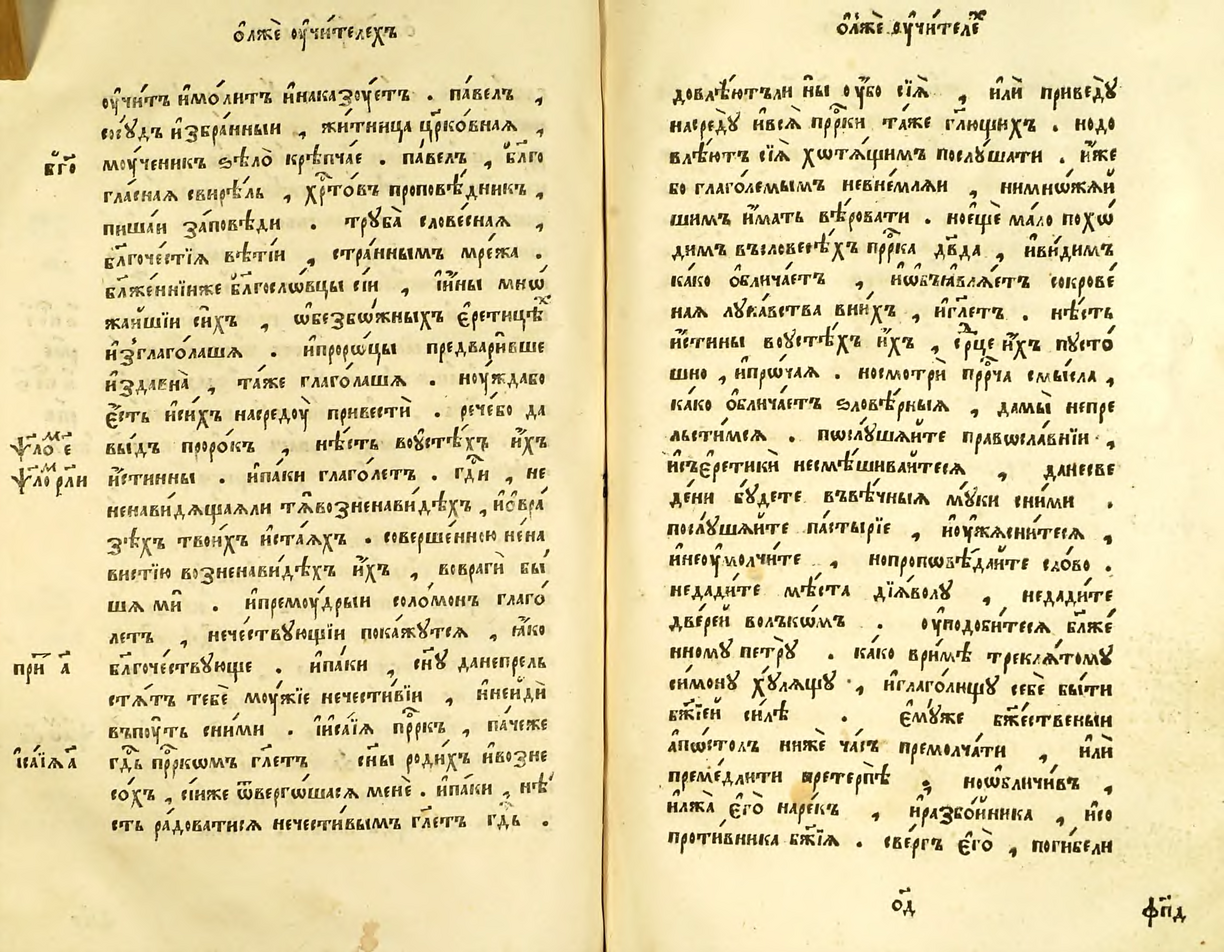 ѻ҆лжѐ ᲂу҆чи́телехъ
ᲂу҆чи́тъ и҆мо́литъ и҆наказꙋ́етъ . па́велъ ,
сосꙋ́дъ и҆збра́нныи , жи́тница цр҃ко́вная ,
бг҃о
моу́ченикъ ѕѣло̀ крѣ́пчае . па́велъ , бл҃го
гла́сная свирѣ́ль , хр҃то́въ проповѣ́дникъ ,
пиша́и за́повѣди . трꙋба̀ слове́сная ,
бл҃гоче́стїѧ вѣ́тїи , стра́ннымъ мре́жа .
бл҃же́ннїиже бл҃госло́вцы сїи , и҆и҆́ны мнѡ
жа́йшїи си́хъ , ѡ҆безбо́жныхъ є҆ретицѣ́х
и҆зглаго́лашѧ . и҆проро́цы предвари́вше
и҆здавна̀ , та́же глаго́лашѧ . ноу҆́ждабо
є҆́сть и҆си́хъ насредоу̀ привестѝ . рече́бо да
ѱало́м є
вы́дъ проро́къ , нѣ́сть воу҆стѣ́хъ и҆́хъ
ѱало́м рли
и҆́стинны . и҆па́ки глаго́летъ . гд҃и , не
ненави́дѧщаѧли тѧ̀возненави́дѣхъ , и҆ѡ҆вра
зѣ́хъ твои́хъ и҆ста́ѧхъ . соверше́нною не́на
вистїю возненави́дѣхъ и҆́хъ , воврагѝ бы́
шѧ мѝ . и҆премоу́дрыи соломо́нъ глаго́
летъ , нече́ствꙋющїи пока́жꙋтсѧ , ꙗ҆́ко
при́ а҃
бл҃гоче́ствꙋюще . и҆па́ки , сн҃ꙋ данепрель
стѧ́тъ тебѐ моу́жїе нечести́вїи , и҆неи҆дѝ
въпоу́ть сни́ми . і҆иса́їѧ прⷪ҇ркъ , па́чеже
і҆са́їѧ а҃
гд҃ь прⷪ҇ркомъ гл҃етъ сн҃ы роди́хъ и҆возне
со́хъ , сїи́же ѿверго́шасѧ менѐ . и҆па́ки , нѣ́
сть ра́доватисѧ нечести́вымъ гл҃етъ гд҃ь .
ѻ҆лжѐ ᲂу҆чи́телеⷯ
довлѣ́ютъли ны̀ ᲂу҆́бо сїѧ̀ , и҆лѝ приведꙋ̀
насредꙋ̀ и҆всѧ̀ прⷪ҇рки та́же гл҃ющихъ . нодо
влѣ́ютъ сїѧ̀ хотѧ́щимъ послꙋ́шати . и҆́же
бо глаго́лемымъ невне́млѧи , нимно́жѧи
шимъ и҆́мать вѣ́ровати . ное҆щѐ ма́ло похо́
димъ въсловесѣ́хъ прⷪ҇рка дв҃да , и҆ви́димъ
ка́ко ѡ҆блича́етъ , и҆ѡ҆бъꙗвлѧ́етъ сокрове́
наѧ лꙋка́вства вни́хъ , и҆гл҃етъ . нѣ́сть
и҆́стины воу҆стѣ́хъ и҆́хъ , ср҃це и҆́хъ пꙋсто́
шно , и҆про́чаѧ . носмотрѝ прⷪ҇рча смы́сла ,
ка́ко ѡ҆блича́етъ ѕловѣ́рныѧ , дамы̀ непре
льсти́мсѧ . послꙋ́шѧйте правосла́внїи ,
и҆съє҆ретикѝ несмѣ́шивайтесѧ , данесве
де́ни бꙋ́дете въвѣ́чныѧ мꙋ́ки сни́ми .
послꙋ́шѧйте па́стырїе , и҆ᲂу҆жѧсни́тесѧ ,
и҆неоу҆молчи́те , нопроповѣ́дайте сло́во .
недади́те мѣ́ста дїѧ́волꙋ , недади́те
две́рей волъко́мъ . ᲂу҆подо́битесѧ бл҃же́
нномꙋ петрꙋ̀ . ка́ко ври́мѣ треклѧ́томꙋ
си́монꙋ хꙋ́лѧщꙋ , и҆глаго́лющꙋ себѐ бы́ти
бж҃їей си́лѣ . є҆мꙋ́же бж҃е́ственыи
а҆по́столъ нижѐ ча́съ премолча́ти , и҆лѝ
преме́длити претерпѣ̀ , ноѡ҆бличи́въ ,
и҆лжа̀ є҆го̀ наре́къ , и҆разбо́йника , и҆со
проти́вника бж҃їѧ . све́ргъ є҆го̀ , поги́бели
од҃
фп҃д